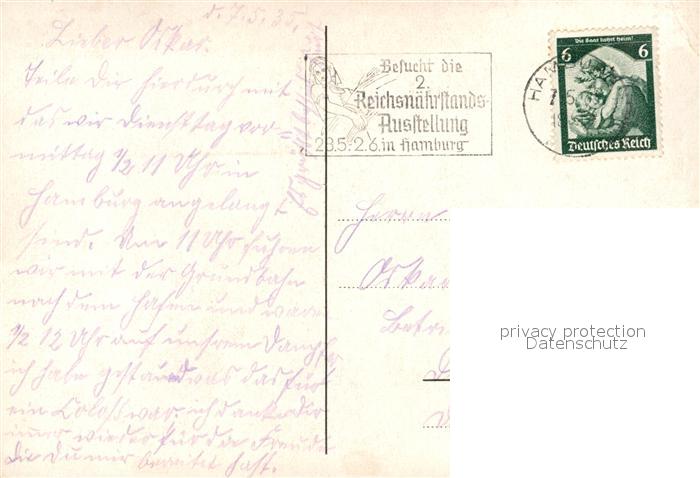 d. 7.5.35.
Lieber Oskar.
Teile Dir hierdurch mit
das wir Diensttag vor-
mittag ½ 11 Uhr in
Hamburg angelangt
sind. Um 11 Uhr fuhren
wir mit der Grundbahn
nach dem Hafen und waren
½ 12 Uhr auf unsrem Dampfer
ich habe gestaund was das für
ein Coloss war. ich danke Dir
immer wieder für die Freude
die Du mir bereitet hast.
Besucht die
2.
Reichsnährstands-
Ausstellung
28.5.-2.6. in Hamburg
HAM
Die Saar kehrt heim!
6 6
Deutsches Reich
Herrn
Oska
Betri
privacy protection
Datenschutz